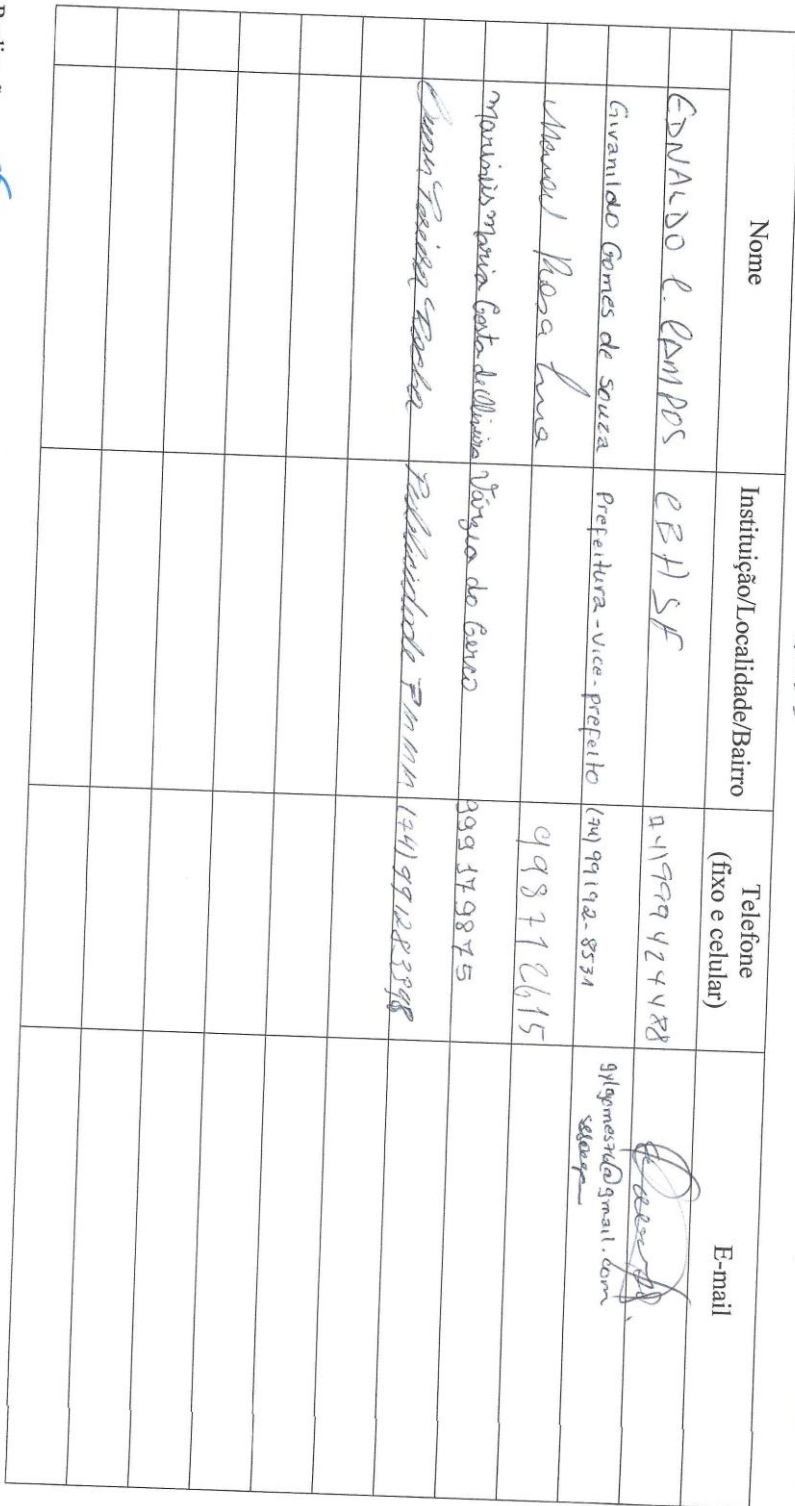 Nome
Instituição/Localidade/Bairro
Telefone
(fixo e celular)
E-mail
EDNALDO C. CAMPOS CBHSF 74)999424488
Givanildo Gomes de Souza Prefeitura - vice-prefeito (74) 99192-8531 gylgomes76@gmail.com
Manoel Rosa Lima 998712615
Marinês Maria Costa de Oliveira Várzea do Cerco 999379875
Rocha Publicidade PMMM (74)991283398